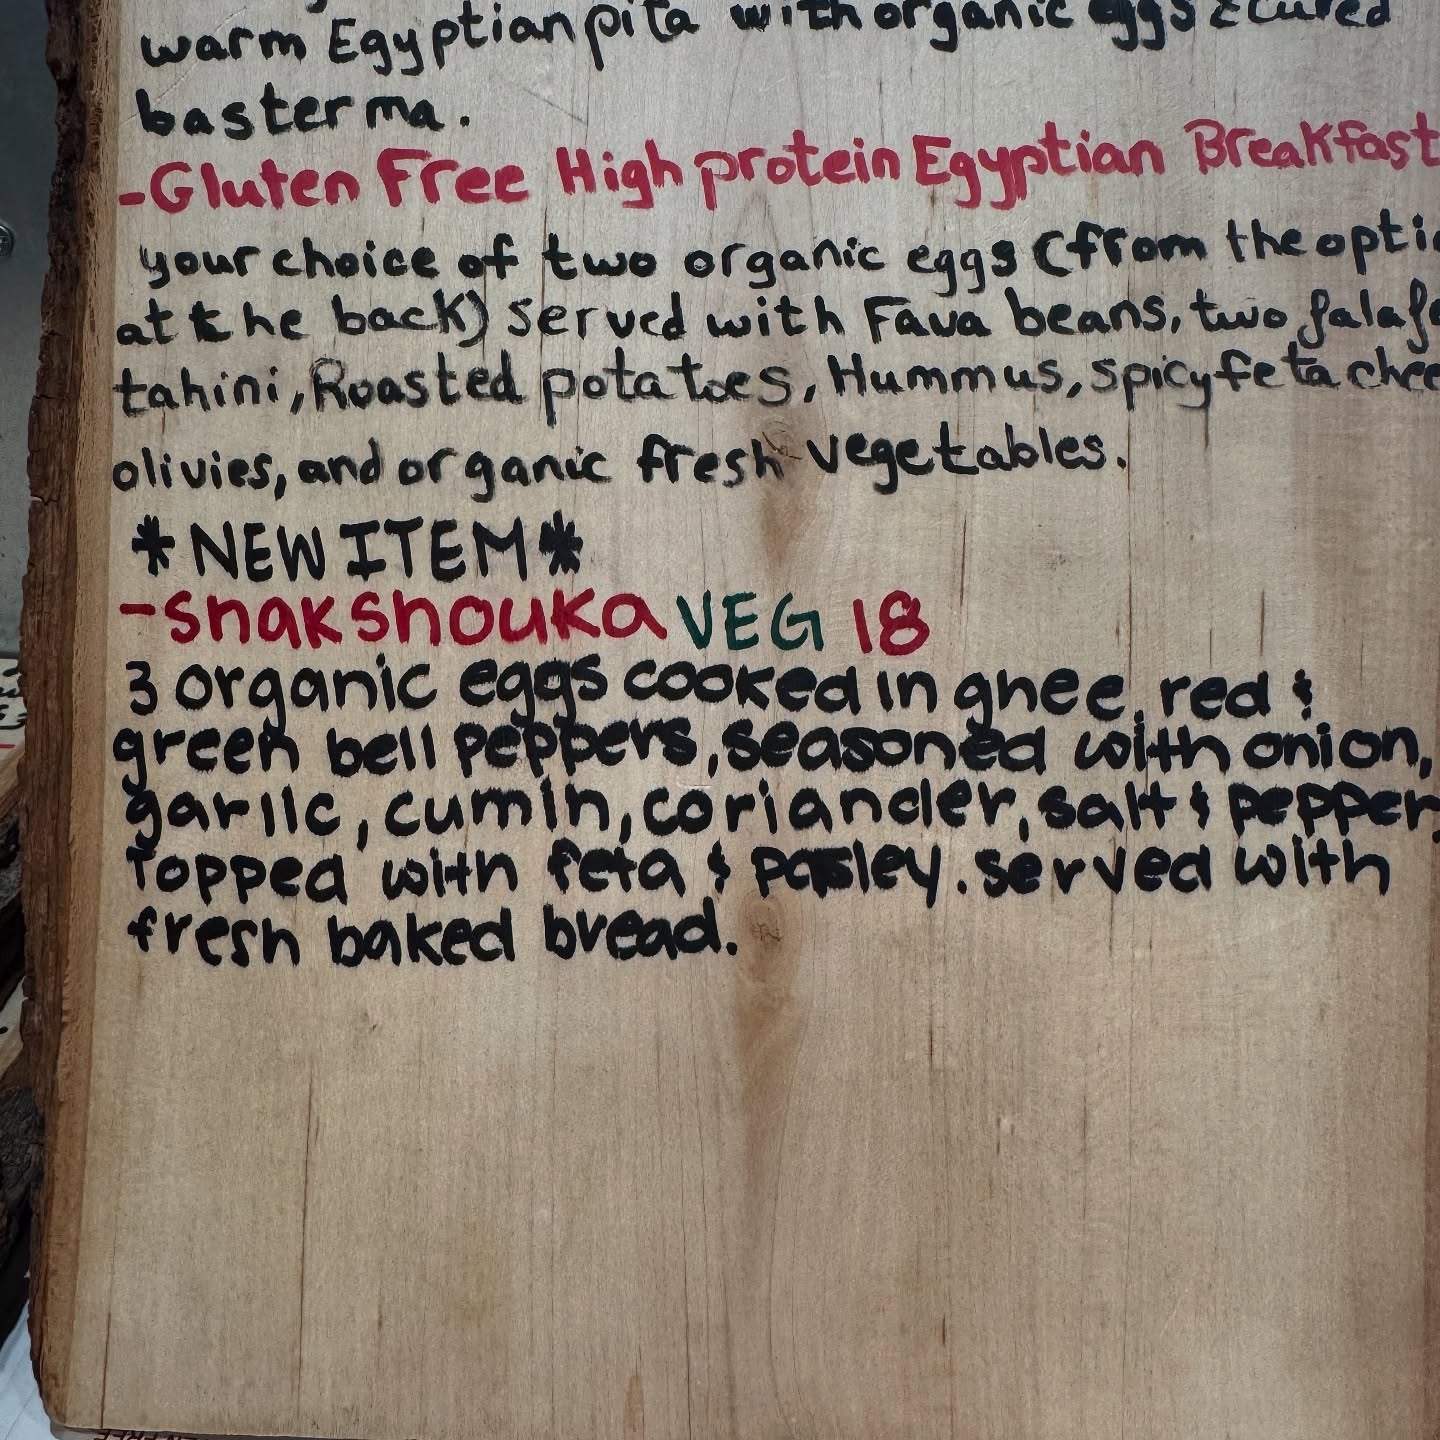 warm Egyptian pita with organic eggs & cured
basterma.
-Gluten Free High protein Egyptian Breakfast
your choice of two organic eggs (from the optio
at the back) served with Fava beans, two falafe
tahini, Roasted potatoes, Hummus, spicy feta chee
olivies, and organic fresh vegetables.
*NEW ITEM*
-shakshouka VEG 18
3 organic eggs cooked in ghee, red &
green bell peppers, seasoned with onion,
garlic, cumin, coriander, salt & pepper,
Topped with feta & pasley. served with
fresh baked bread.